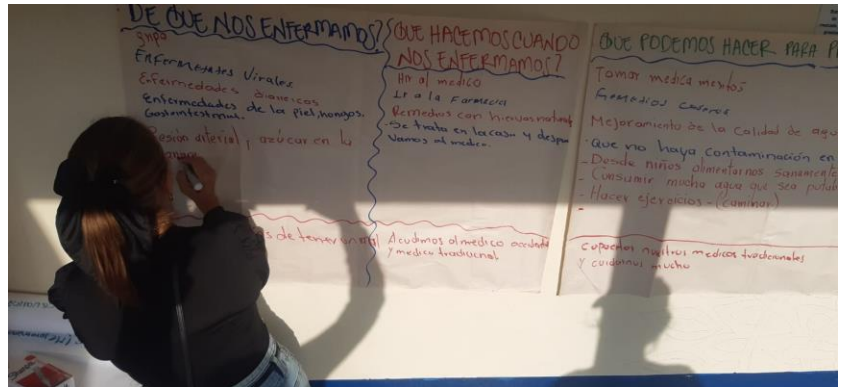 DE QUE NOS ENFERMAMOS?
gripa
Enfermedades Virales
Enfermedades
enfermedades de la Piel, hongos.
Gastrointestinal.
Presión arterial, azúcar en la
sangre
QUE HACEMOS CUANDO
NOS ENFERMAMOS?
al medico
Ir a la Farmacia
Remedios con hierbas
-Se trata en la casa y despues
vamos al medico.
Acudimos al medico occidental
y medico tradicional
QUE PODEMOS HACER PARA
Tomar medicamentos
Remedios Caseros
Mejoramiento de la Calidad de agua
-Que no haya contaminación en
-Desde niños alimentarnos sanamente
-Consumir mucha agua que sea potable
-Hacer ejercicios - (caminar)
-
nuestros medicos tradicionales
y cuidarnos mucho